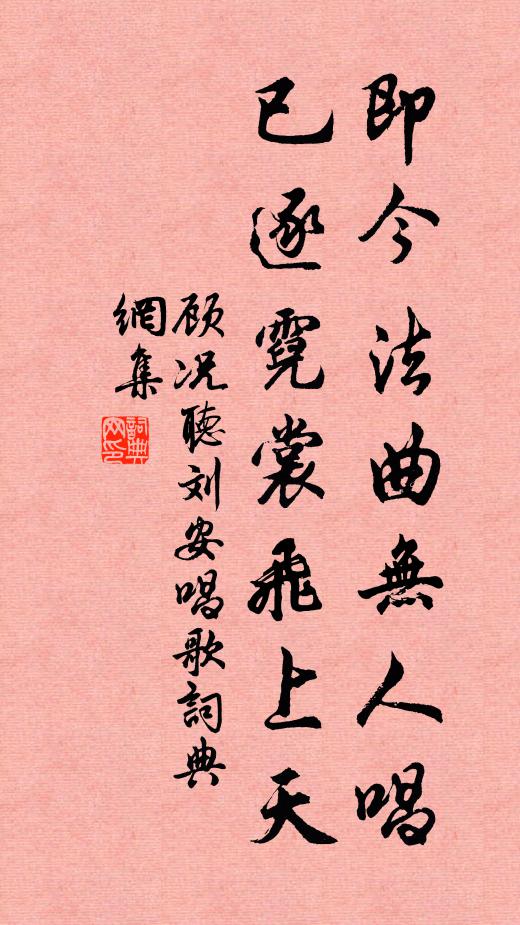 即今法曲無人唱
已逐霓裳飛上天
顾况聽刘安唱歌詞典
網集
詞典
网印